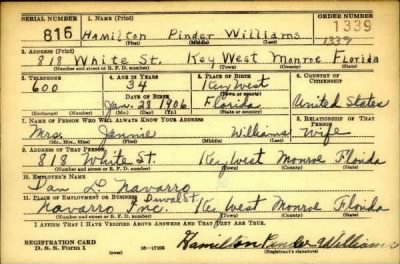 SERIAL NUMBER 1. NAME (Print) ORDER NUMBER
816 Hamilton Pinder Williams 1339
(First) (Middle) (Last) 1339
2. ADDRESS (Print)
818 White St. Key West Monroe Florida
(Number and street or R. F. D. number) (Town) (County) (State)
3. TELEPHONE 4. AGE IN YEARS 5. PLACE OF BIRTH 6. COUNTRY OF CITIZENSHIP
600 34 Key West
DATE OF BIRTH (Town or county)
Jan. 28 1906 Florida United States
(Exchange) (Number) (Mo.) (Day) (Yr.) (State or country)
7. NAME OF PERSON WHO WILL ALWAYS KNOW YOUR ADDRESS 8. RELATIONSHIP OF THAT PERSON
Mrs. Jennie Williams Wife
(Mr., Mrs., Miss) (First) (Middle) (Last)
9. ADDRESS OF THAT PERSON
818 White St. Key West Monroe Florida
(Number and street or R. F. D. number) (Town) (County) (State)
10. EMPLOYER'S NAME
Dan L. Navarro
11. PLACE OF EMPLOYMENT OR BUSINESS Duval St.
Navarro Inc. Key West Monroe Florida
(Number and street or R. F. D. number) (Town) (County) (State)
I AFFIRM THAT I HAVE VERIFIED ABOVE ANSWERS AND THAT THEY ARE TRUE.
REGISTRATION CARD Hamilton Pinder Williams
D. S. S. Form 1 (over) (Registrant's signature)